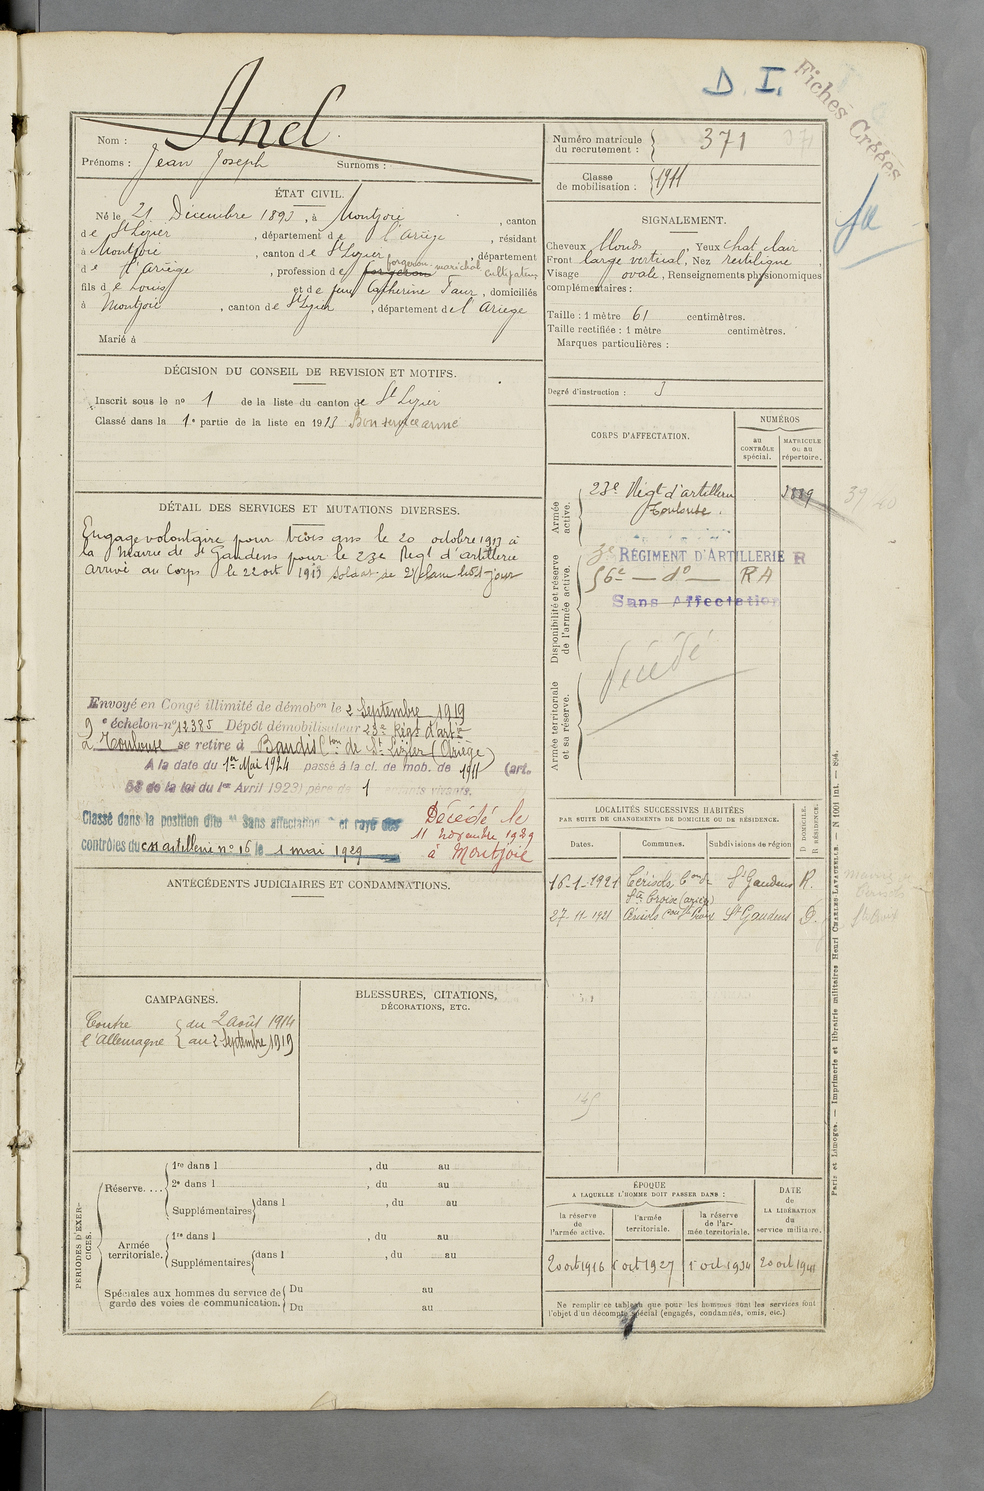 D. I.
Fiches Créées
Nom : Anel
Prénoms : Jean Joseph Surnoms :
Numéro matricule du recrutement : 371
Classe de mobilisation : 1911
ÉTAT CIVIL.
Né le 21 Décembre 1893, à Montjoie, canton
de St Lizier, département de l'Ariège, résidant
à Montjoie, canton de St Lizier, département
de l'Ariège, profession de forgeron forgeron maréchal cultivateur
fils de Louis et de feue Catherine Faur, domiciliés
à Montjoie, canton de St Lizier, département de l'Ariège
Marié à
SIGNALEMENT.
Cheveux blonds, Yeux chat. clair,
Front large vertical, Nez rectiligne,
Visage ovale, Renseignements physionomiques
complémentaires :
Taille : 1 mètre 61 centimètres.
Taille rectifiée : 1 mètre centimètres.
Marques particulières :
Degré d'instruction : 3
DÉCISION DU CONSEIL DE REVISION ET MOTIFS.
Inscrit sous le no 1 de la liste du canton de St Lizier
Classé dans la 1e partie de la liste en 1913 Bon service armé
DÉTAIL DES SERVICES ET MUTATIONS DIVERSES.
Engagé volontaire pour trois ans le 20 octobre 1913 à
la Mairie de St Gaudens pour le 23e Régt d'artillerie
arrivé au Corps le 22 oct 1913 soldat de 2e classe
Envoyé en Congé illimité de démobon le 2 Septembre 1919
9e échelon-no 12385 Dépôt démobilisateur 23e Régt d'artie
à Toulouse se retire à Baudis Cton de St Lizier (Ariège)
A la date du 1er Mai 1924 passé à la cl. de mob. de 1911 (art.
58 de la loi du 1er Avril 1923) père de 1 enfants vivants.
Classé dans la position dite "Sans affectation" et rayé des
contrôles du CM artillerie no 16 le 1 mai 1929
Décédé le
11 novembre 1929
à Montjoie
CORPS D'AFFECTATION.
NUMÉROS
au CONTRÔLE spécial.
MATRICULE OU AU répertoire.
Armée active.
23e Régt d'artillerie
Toulouse.
Disponibilité et réserve de l'armée active.
3e RÉGIMENT D'ARTILLERIE R
56e — do — RA
Sans Affectation
décédé
Armée territoriale et sa réserve.
LOCALITÉS SUCCESSIVES HABITÉES
PAR SUITE DE CHANGEMENTS DE DOMICILE OU DE RÉSIDENCE.
Dates. Communes. Subdivisions de région
D DOMICILE. R RÉSIDENCE.
16-1-1921 Cérisols Con de St Gaudens R.
Ste Croix (Ariège)
27-11-1921 Cérisols Con Ste Croix St Gaudens D.
ANTÉCÉDENTS JUDICIAIRES ET CONDAMNATIONS.
CAMPAGNES.
Contre l'Allemagne { du 2 août 1914
au 2 Septembre 1919
BLESSURES, CITATIONS,
DÉCORATIONS, ETC.
PÉRIODES D'EXERCICES.
Réserve.... 1re dans l , du au
2e dans l , du au
Supplémentaires dans l , du au
Armée territoriale. 1re dans l , du au
Supplémentaires dans l , du au
Spéciales aux hommes du service de garde des voies de communication. Du au
Du au
ÉPOQUE
A LAQUELLE L'HOMME DOIT PASSER DANS :
la réserve de l'armée active.
l'armée territoriale.
la réserve de l'armée territoriale.
DATE de LA LIBÉRATION du service militaire.
20 oct 1916 1 oct 1927 1er oct 1934 20 oct 1941
Ne remplir ce tableau que pour les hommes dont les services font
l'objet d'un décompte spécial (engagés, condamnés, omis, etc.)
Paris et Limoges. — Imprimerie et librairie militaires Henri CHARLES-LAVAUZELLE. — N 1001 Int. — 894.